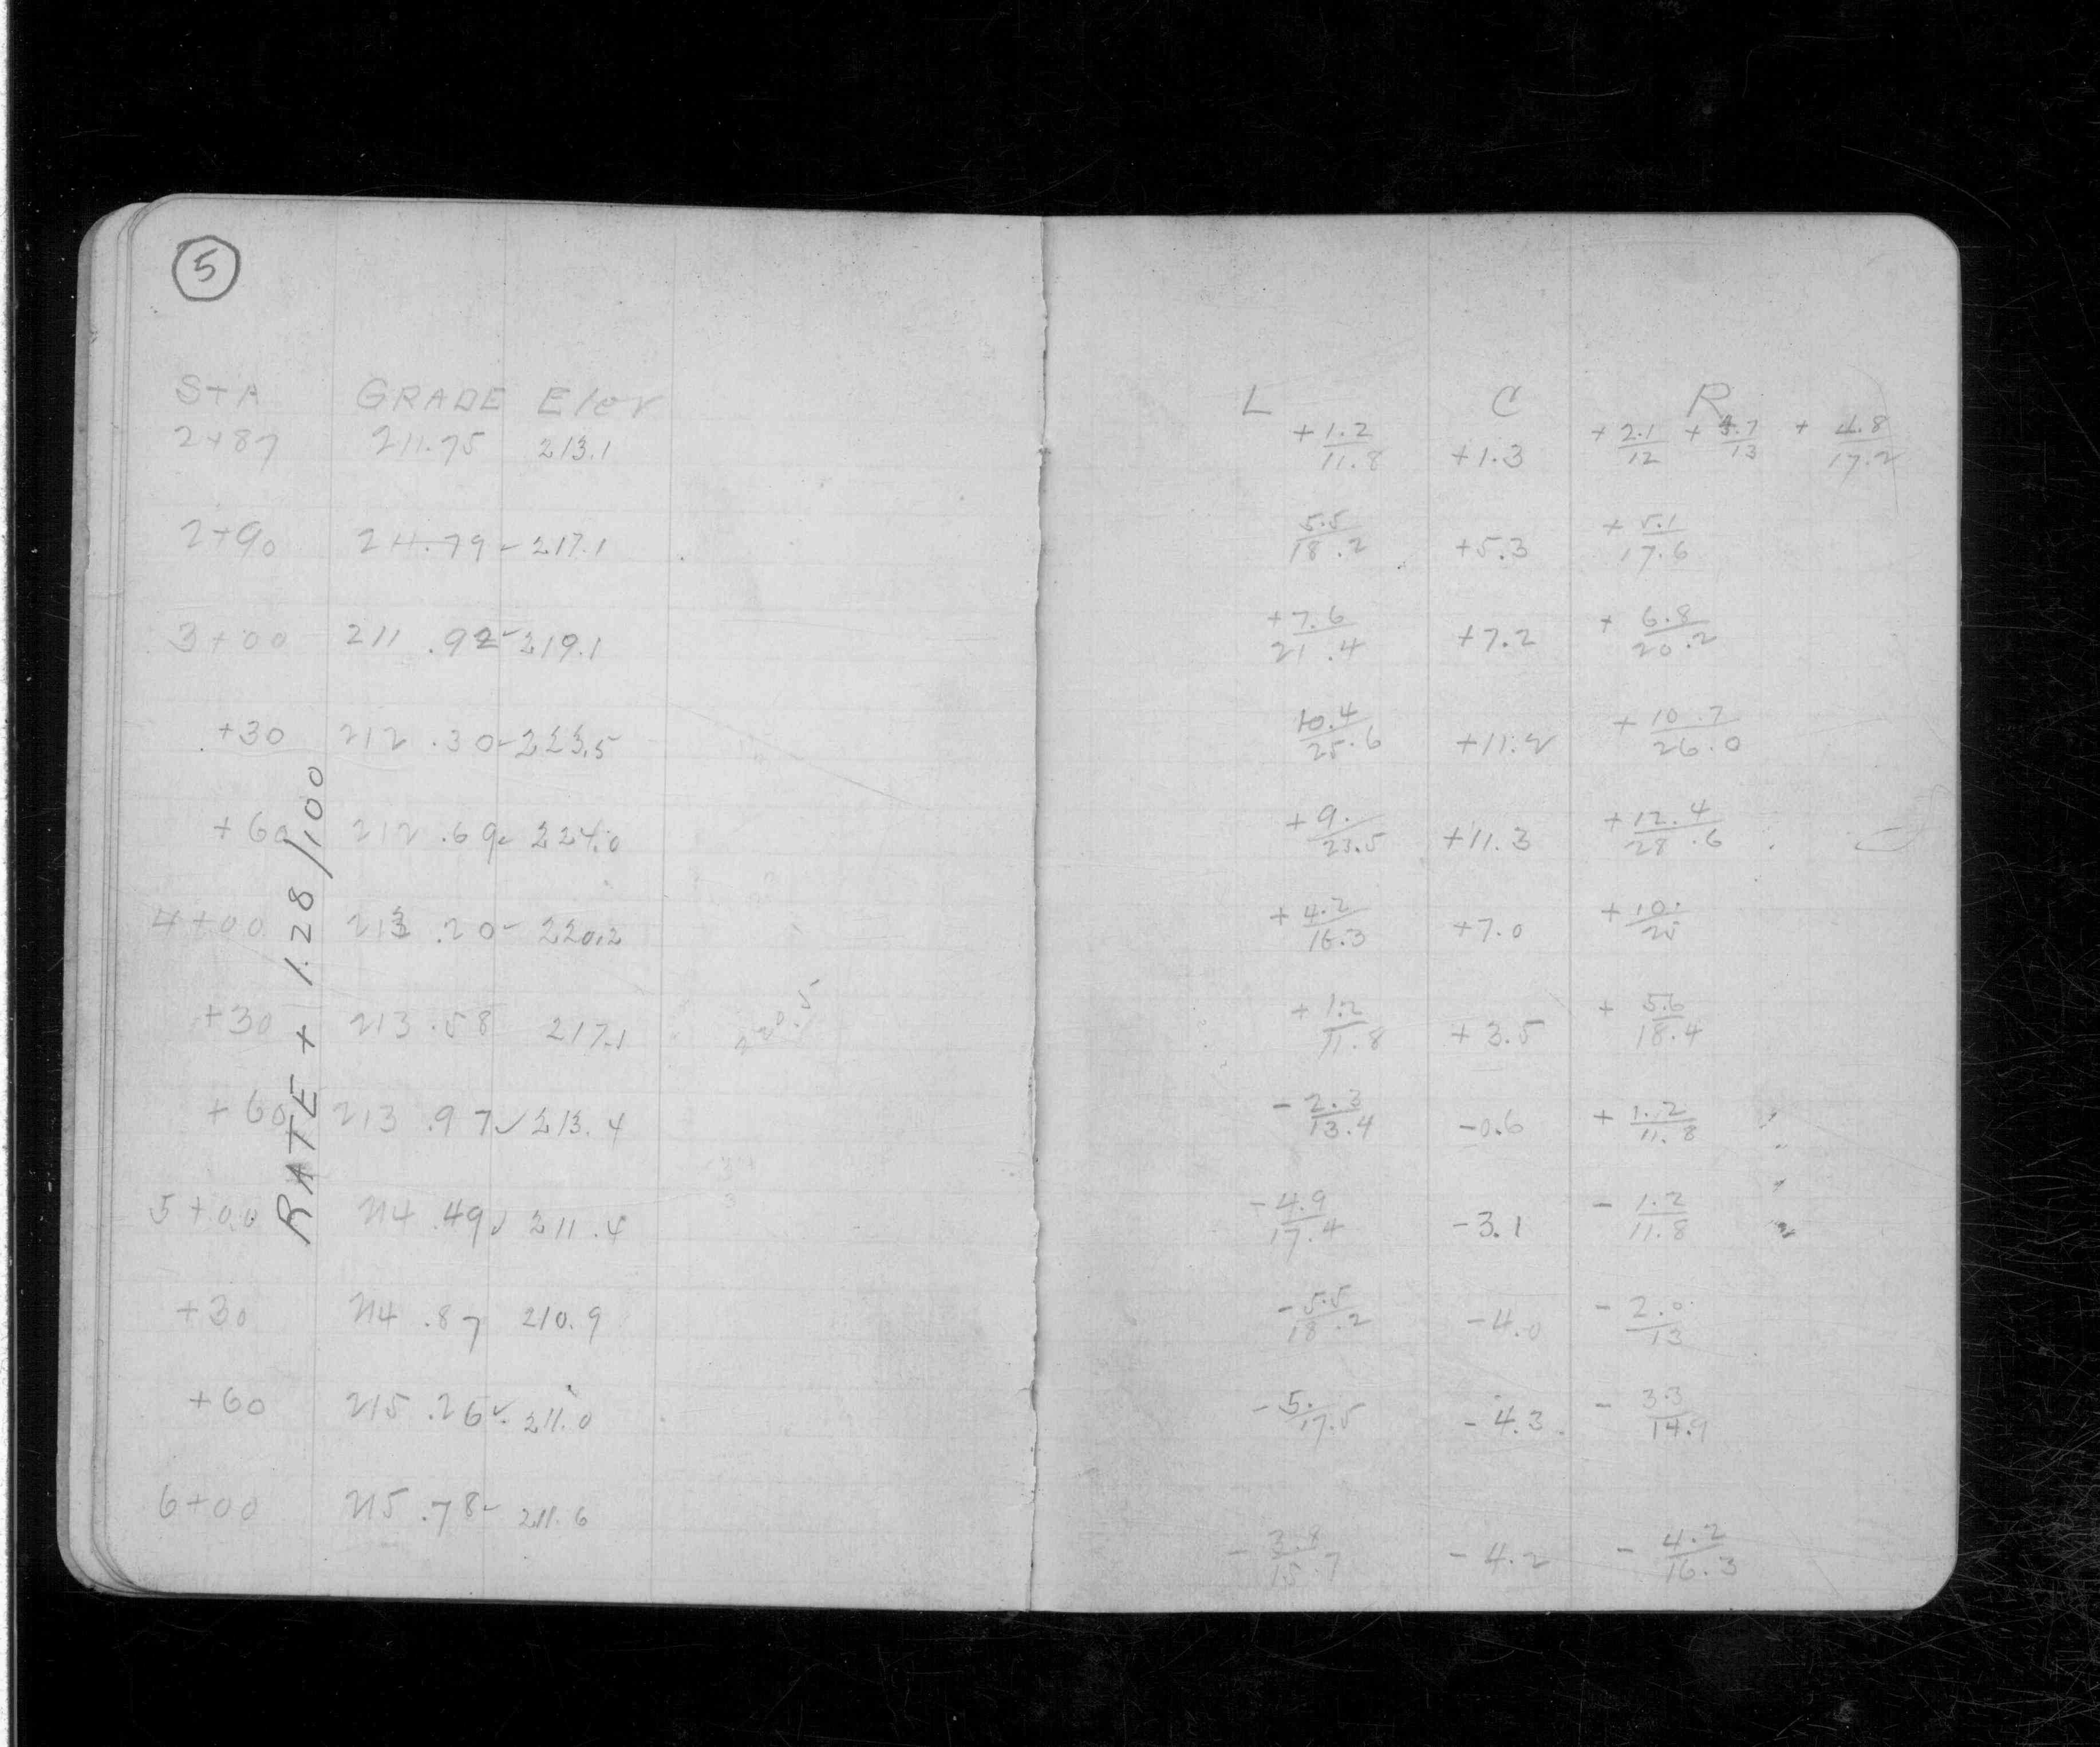 5
STA GRADE Elev
2+87 211.75 213.1
2+90 211.79 - 217.1
3+00 211.92 - 219.1
+30 212.30 - 223.5
+60 212.69 - 224.0
4+00 213.20 - 220.2
+30 213.58 217.1
220.5
+60 213.97 ✓ 213.4
5+00 214.49 ✓ 211.4
+30 214.87 210.9
+60 215.26 ✓ 211.0
6+00 215.78 - 211.6
RATE + 1.28/100
L C R
+1.2/11.8 +1.3 +2.1/12 + /13 + 4.8/17.2
5.5/18.2 +5.3 +5.1/17.6
+7.6/21.4 +7.2 +6.8/20.2
10.4/25.6 +11.2 +10.7/26.0
+9./23.5 +11.3 +12.4/28.6
+4.2/16.3 +7.0 +10./25
+1.2/11.8 +3.5 +5.6/18.4
-2.3/13.4 -0.6 +1.2/11.8
-4.9/17.4 -3.1 -1.2/11.8
-5.5/18.2 -4.0 -2.0/13
-5./17.5 -4.3 -3.3/14.9
-3.8/15.7 -4.2 -4.2/16.3